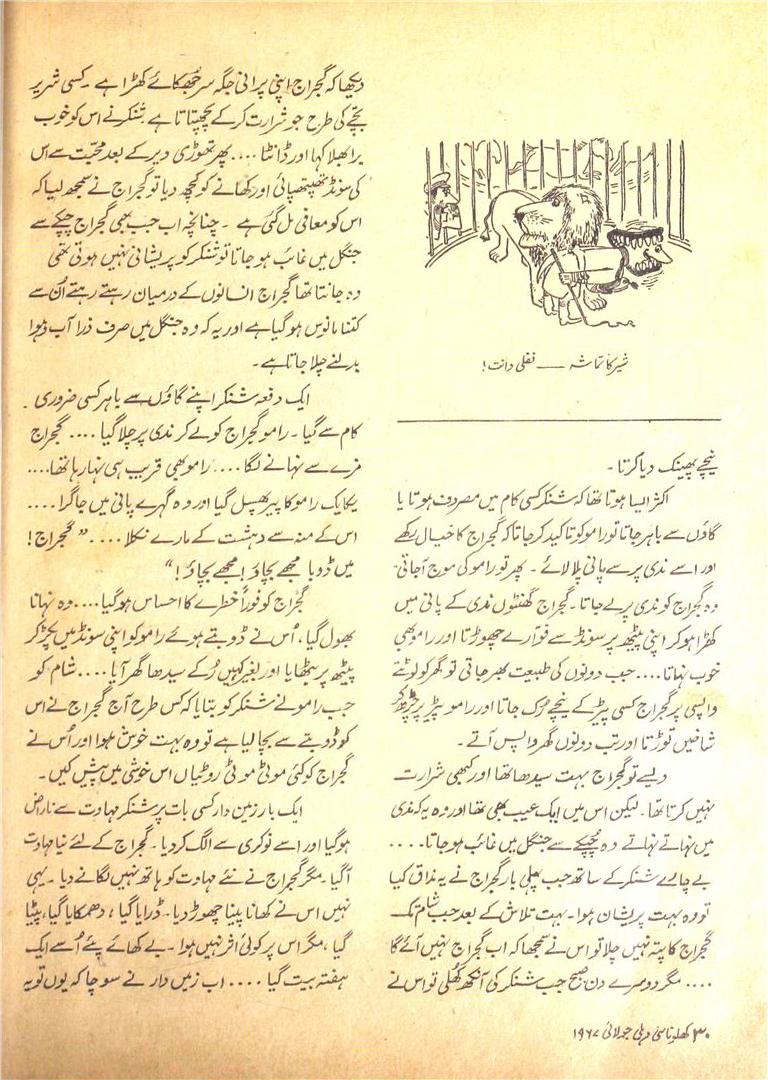 شیر کا تماشہ ـــــ نقلی دانت!
نیچے پھینک دیا کرتا۔
اکثر ایسا ہوتا تھا کہ شنکر کسی کام میں مصروف ہوتا یا
گاؤں سے باہر جاتا تو رامو کو تاکید کر جاتا کہ گجراج کا خیال رکھے
اور اسے ندی پر سے پانی پلا لائے۔ پھر تو رامو کی موج آجاتی۔
وہ گجراج کو ندی پر لے جاتا۔ گجراج گھنٹوں ندی کے پانی میں
کھڑا ہو کر اپنی پیٹھ پر سونڈ سے فوّارے چھوڑتا اور رامو بھی
خوب نہاتا.... جب دونوں کی طبیعت بھر جاتی تو گھر کو لوٹتے
واپسی پر گجراج کسی پیڑ کے نیچے رُک جاتا اور رامو پیڑ پر چڑھ کر
شاخیں توڑتا اور تب دونوں گھر واپس آتے۔
ویسے تو گجراج بہت سیدھا تھا اور کبھی شرارت
نہیں کرتا تھا۔ لیکن اس میں ایک عیب بھی تھا اور وہ یہ کہ ندی
میں نہاتے نہاتے وہ چُپکے سے جنگل میں غائب ہو جاتا....
بے چارے شنکر کے ساتھ جب پہلی بار گجراج نے یہ مذاق کیا
تو وہ بہت پریشان ہوا۔ بہت تلاش کے بعد جب شام تک
گجراج کا پتہ نہیں چلا تو اس نے سمجھا کہ اب گجراج نہیں آئے گا
.... مگر دوسرے دن صبح جب شنکر کی آنکھ کھُلی تو اس نے
دیکھا کہ گجراج اپنی پرانی جگہ سر جھکائے کھڑا ہے۔ کسی شریر
بچّے کی طرح جو شرارت کر کے پچھتاتا ہے شنکر نے اس کو خوب
برا بھلا کہا اور ڈانٹا.... پھر تھوڑی دیر کے بعد محبّت سے اس
کی سونڈ تھپتھپائی اور کھانے کو کچھ دیا تو گجراج نے سمجھ لیا کہ
اس کو معافی مل گئی ہے۔ چنانچہ اب جب بھی گجراج چپکے سے
جنگل میں غائب ہو جاتا تو شنکر کو پریشانی نہیں ہوتی تھی
وہ جانتا تھا گجراج انسانوں کے درمیان رہتے رہتے اُن سے
کتنا مانوس ہو گیا ہے اور یہ کہ وہ جنگل میں صرف ذرا آب و ہوا
بدلنے چلا جاتا ہے۔
ایک دفعہ شنکر اپنے گاؤں سے باہر کسی ضروری
کام سے گیا۔ رامو گجراج کو لے کر ندی پر چلا گیا.... گجراج
مزے سے نہانے لگا.... رامو بھی قریب ہی نہا رہا تھا....
یکایک رامو کا پیر پھسل گیا اور وہ گہرے پانی میں جا گرا....
اس کے منہ سے دہشت کے مارے نکلا.... "گجراج!
میں ڈوبا مجھے بچاؤ! مجھے بچاؤ!"
گجراج کو فوراً خطرے کا احساس ہو گیا.... وہ نہانا
بھول گیا، اُس نے ڈوبتے ہوئے رامو کو اپنی سونڈ میں پکڑ کر
پیٹھ پر بیٹھایا اور بغیر کہیں رُکے سیدھا گھر آیا.... شام کو
جب رامو نے شنکر کو بتایا کہ کس طرح آج گجراج نے اس
کو ڈوبتے سے بچا لیا ہے تو وہ بہت خوش ہوا اور اُس نے
گجراج کو کئی موٹی موٹی روٹیاں اس خوشی میں پیش کیں۔
ایک بار زمین دار کسی بات پر شنکر مہاوت سے ناراض
ہو گیا اور اسے نوکری سے الگ کر دیا۔ گجراج کے لئے نیا مہاوت
آگیا۔ مگر گجراج نے نئے مہاوت کو ہاتھ نہیں لگانے دیا۔ یہی
نہیں اس نے کھانا پینا چھوڑ دیا۔ ڈرایا گیا، دھمکایا گیا، پیٹا
گیا، مگر اس پر کوئی اثر نہیں ہوا۔ بے کھائے پئے اُسے ایک
ہفتہ بیت گیا.... اب زمیں دار نے سوچا کہ یوں تو یہ
۳۰ کھلونا نئی دہلی جولائی ۱۹۶۷